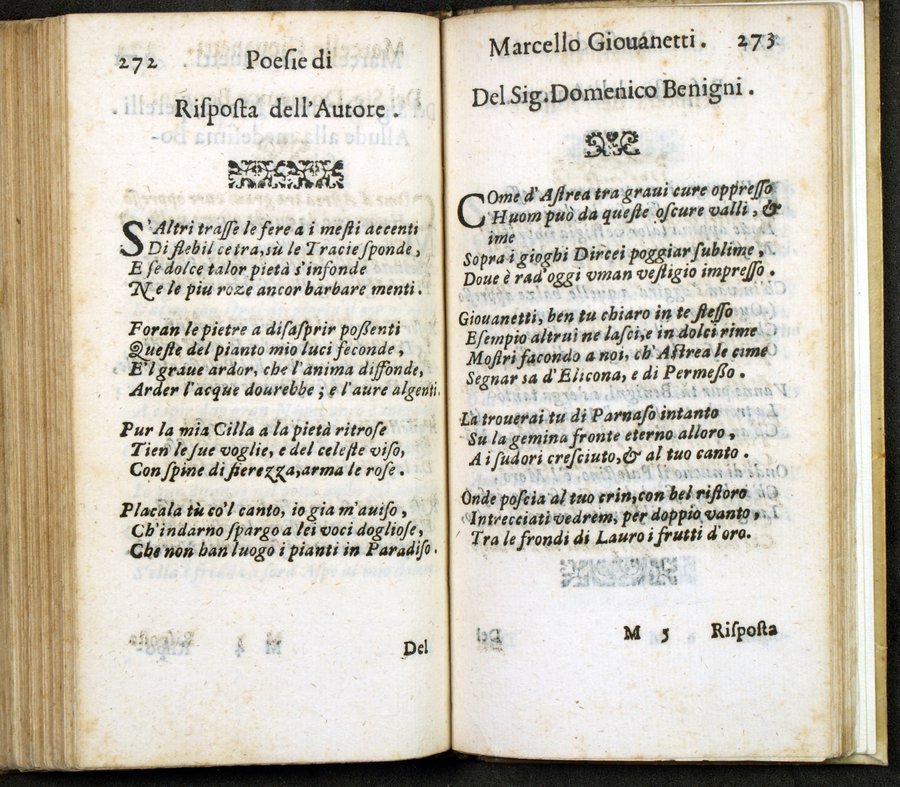 272 Poeſie di
Riſpoſta dell'Autore.
S'Altri traſſe le fere a i meſti accenti
Di flebil cetra, sù le Tracie ſponde,
E ſe dolce talor pietà s'infonde
Ne le piu roze ancor barbare menti.
Foran le pietre a diſaſprir poſſenti
Queſte del pianto mio luci feconde,
E'l graue ardor, che l'anima diffonde,
Arder l'acque dourebbe; e l'aure algenti.
Pur la mia Cilla a la pietà ritroſe
Tien le ſue voglie, e del celeſte viſo,
Con ſpine di fierezza, arma le roſe.
Placala tù co'l canto, io gia m'auiſo,
Ch'indarno ſpargo a lei voci doglioſe,
Che non han luogo i pianti in Paradiſo.
Del
Marcello Giouanetti. 273
Del Sig. Domenico Benigni.
COme d'Aſtrea tra graui cure oppreſſo
Huom può da queſte oſcure valli, &
ime
Sopra i gioghi Dircei poggiar ſublime,
Doue è rad'oggi vman veſtigio impreſſo.
Giouanetti, ben tu chiaro in te ſteſſo
Eſempio altrui ne laſci, e in dolci rime
Moſtri facondo a noi, ch'Aſtrea le cime
Segnar sa d'Elicona, e di Permeſſo.
La trouerai tu di Parnaſo intanto
Su la gemina fronte eterno alloro,
A i ſudori creſciuto, & al tuo canto.
Onde poſcia al tuo crin, con bel riſtoro
Intrecciati vedrem, per doppio vanto,
Tra le frondi di Lauro i frutti d'oro.
M 5 Riſpoſta